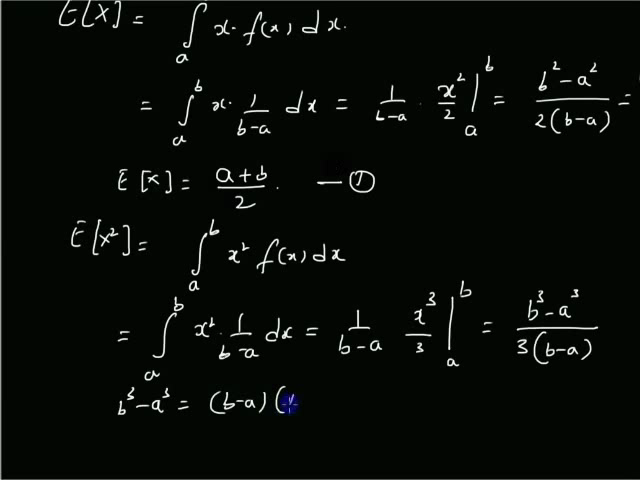 E[X] = ∫ₐ x. f(x) dx.
= ∫ₐᵇ x. 1/(b-a) dx = 1/(b-a) . x²/2 |ₐᵇ = (b² - a²)/(2(b-a)) =
E[X] = (a+b)/2 . — ①
E[X²] = ∫ₐᵇ x² f(x) dx
= ∫ₐᵇ x². 1/(b-a) dx = 1/(b-a) x³/3 |ₐᵇ = (b³ - a³)/(3(b-a))
b³ - a³ = (b-a) (